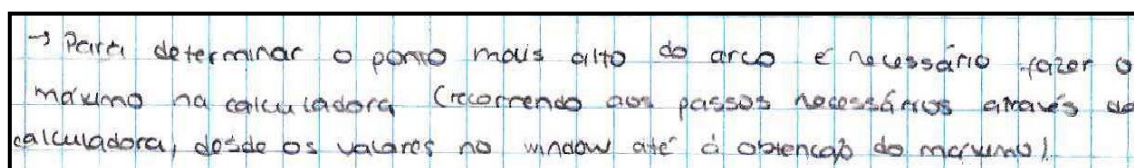 → Para determinar o ponto mais alto do arco é necessário fazer o
máximo na calculadora (recorrendo aos passos necessários através da
calculadora, desde os valores no window até à obtenção do máximo).